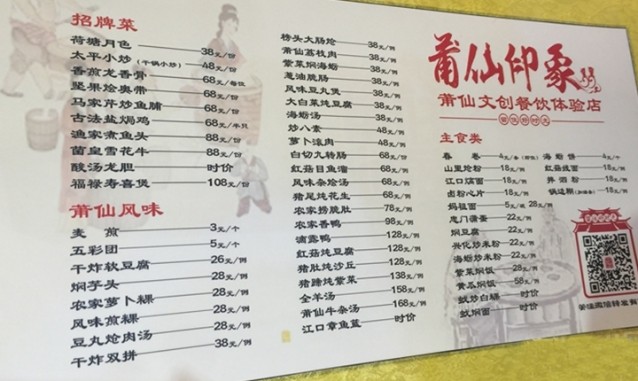 招牌菜
荷塘月色 38元/份
太平小炒(干锅小炒) 48元/份
香煎龙香骨 68元/每位
坚果烩奥带 68元/份
马家芹炒鱼脯 68元/份
古法盐焗鸡 68元/半只
渔家煮鱼头 88元/份
菌皇雪花牛 88元/份
酸汤龙胆 时价
福禄寿喜煲 108元/份
莆仙风味
麦煎 3元/个
五彩团 5元/个
干炸软豆腐 26元/例
焖芋头 28元/例
农家萝卜粿 28元/例
风味煎粿 28元/例
豆丸炝肉汤 28元/例
干炸双拼 38元/例
榜头大肠烩 38元/例
莆仙荔枝肉 38元/例
紫菜焖海蛎 38元/例
葱油脆肠 38元/例
风味豆丸煲 38元/例
大白菜炖豆腐 38元/例
海蛎汤 38元/例
炒八素 48元/例
萝卜滚肉 48元/例
白切九转肠 68元/例
红菇目鱼溜 68元/例
风味杂烩汤 68元/例
猪尾炖花生 68元/例
农家捞脆肚 78元/例
农家香鸭 98元/例
滴露鸭 128元/例
红菇炖豆腐 98元/例
猪肚炖沙丘 128元/例
猪蹄炖紫菜 138元/例
全羊汤 158元/例
莆仙牛杂汤 168元/例
江口章鱼蓝 时价
莆仙印象
莆仙文创餐饮体验店
主食类
春卷 4元/条
海蛎饼 4元/个
山里烩粉 18元/例
红菇线面 18元/例
江口焿面 18元/例
卤粉心片 18元/例
18元/例
妈祖面 5元/碗 28元/例
忠门薄蛋 22元/例
焖豆腐 22元/例
兴化炒米粉 22元/例
海蛎炒米粉 22元/例
紫菜焖饭 28元/例
黄瓜焖饭 58元/例
蚬炒白粿 时价
蚬焖面 时价